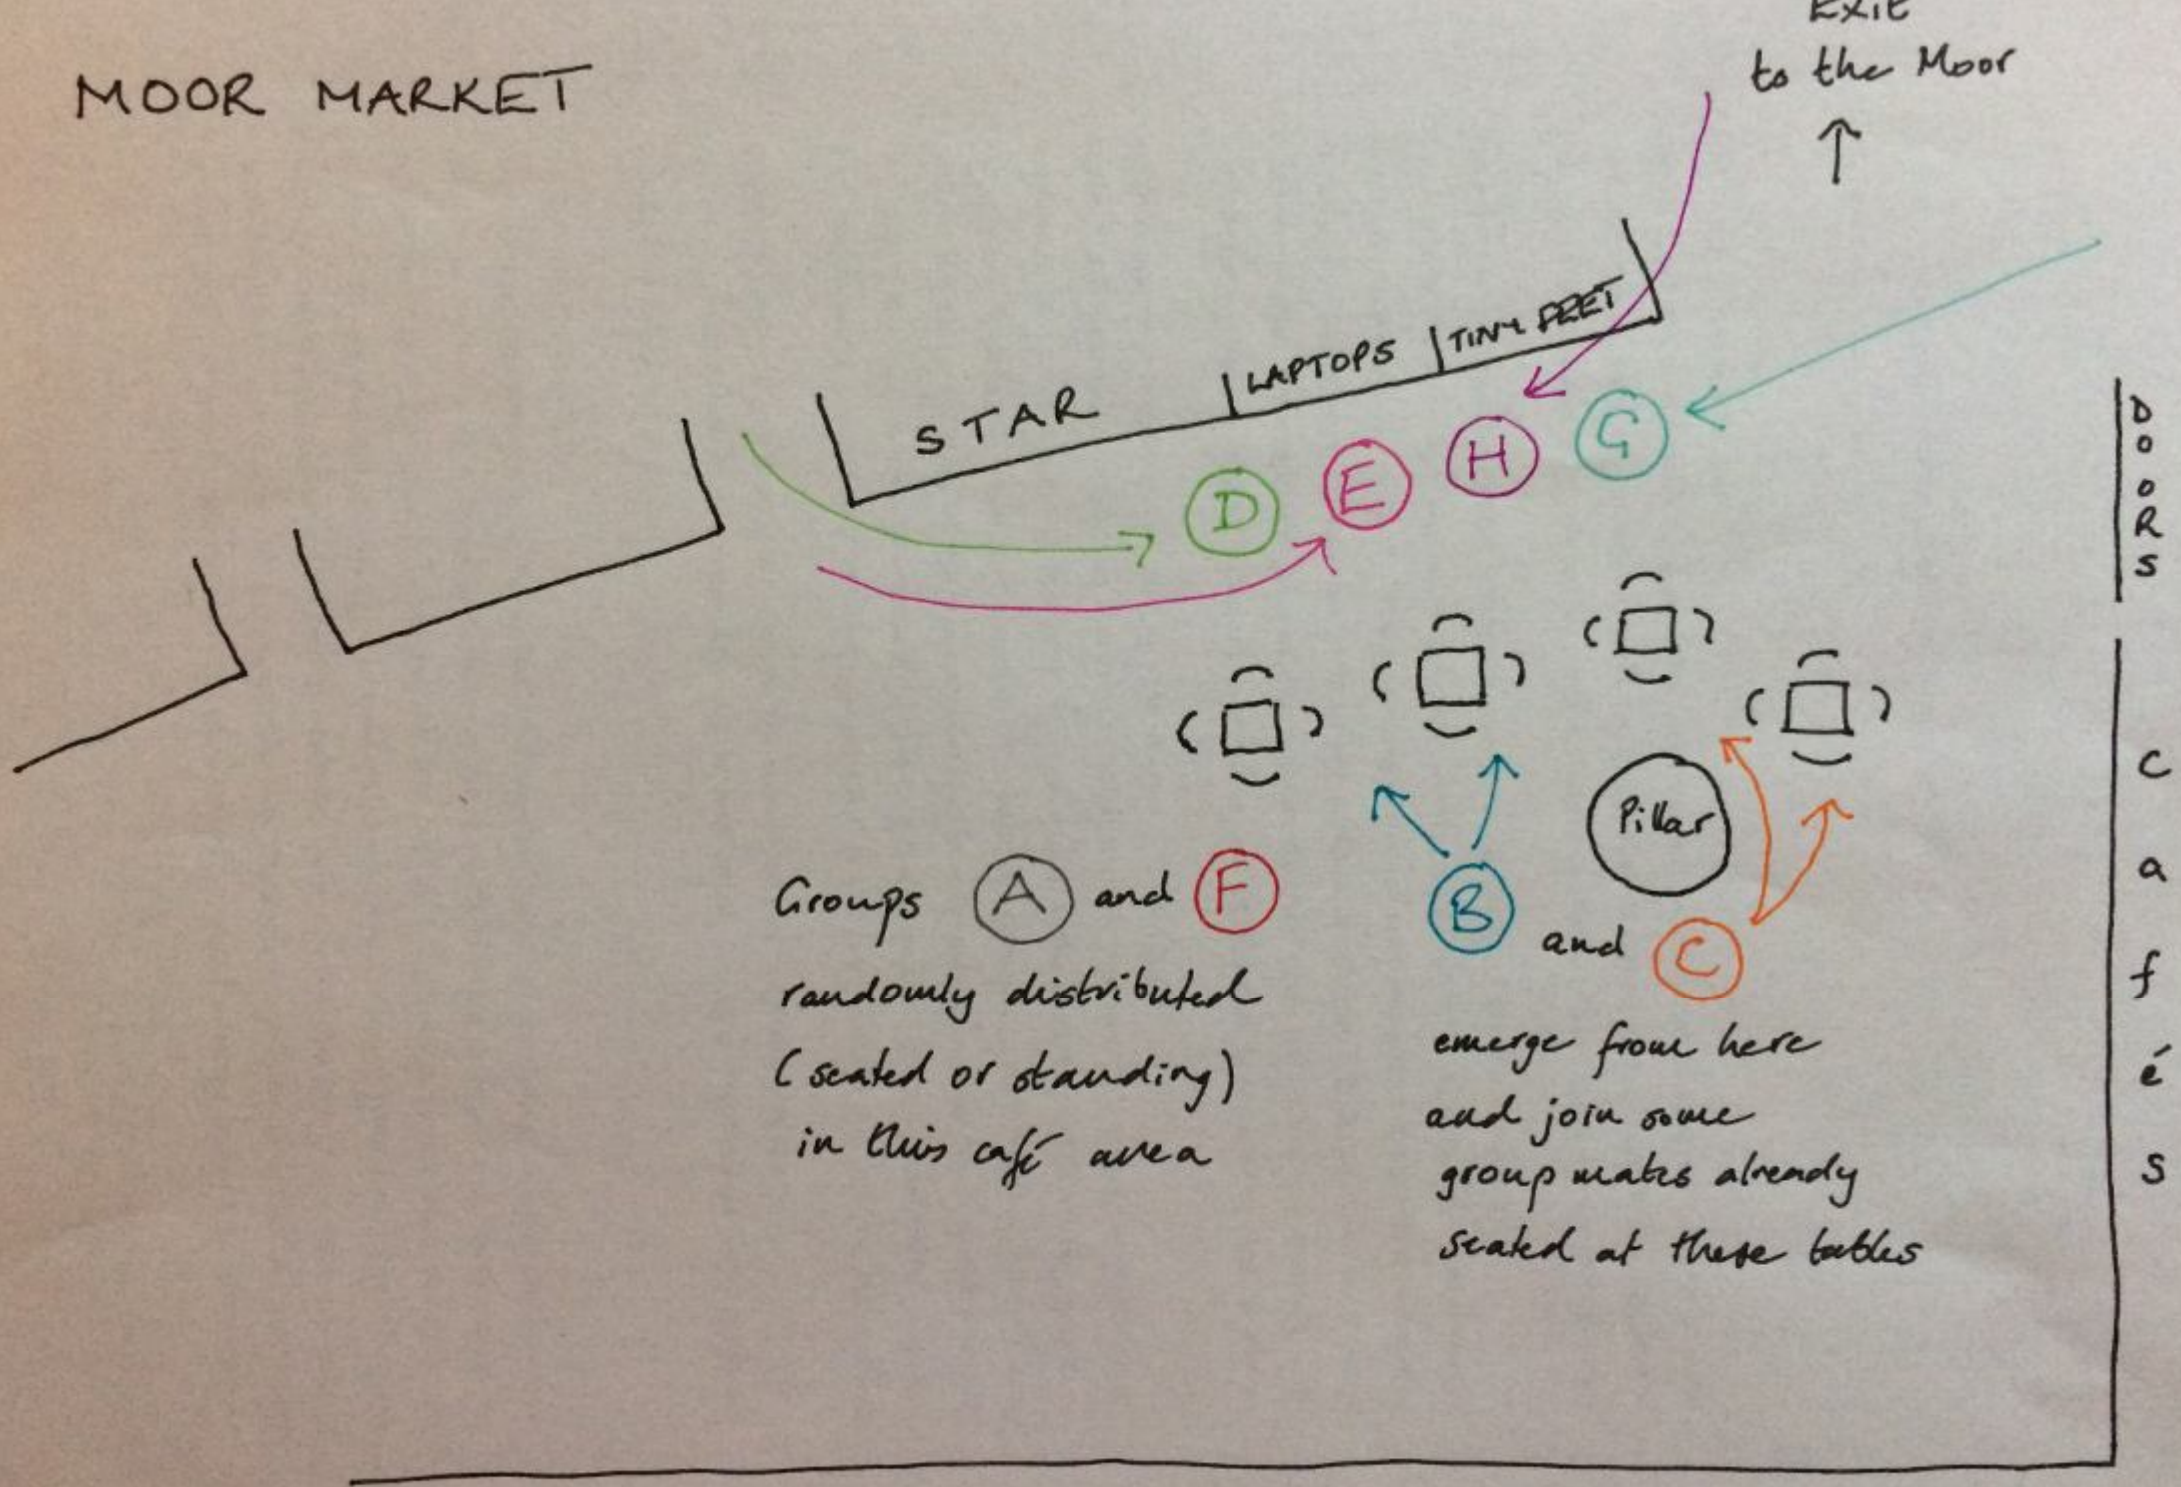 MOOR MARKET
Exit
to the Moor
STAR
LAPTOPS
TINY FEET
DOORS
D
E
H
G
Pillar
Groups A and F
randomly distributed
(seated or standing)
in this café area
B and C
emerge from here
and join some
group mates already
seated at these tables
Cafés